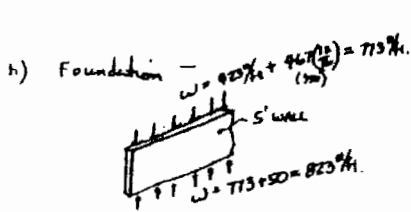 h) Foundation —
w = 423 #/ft + 467(12/16) = 773 #/ft.
5' WALL
w = 773+50 = 823 #/ft.